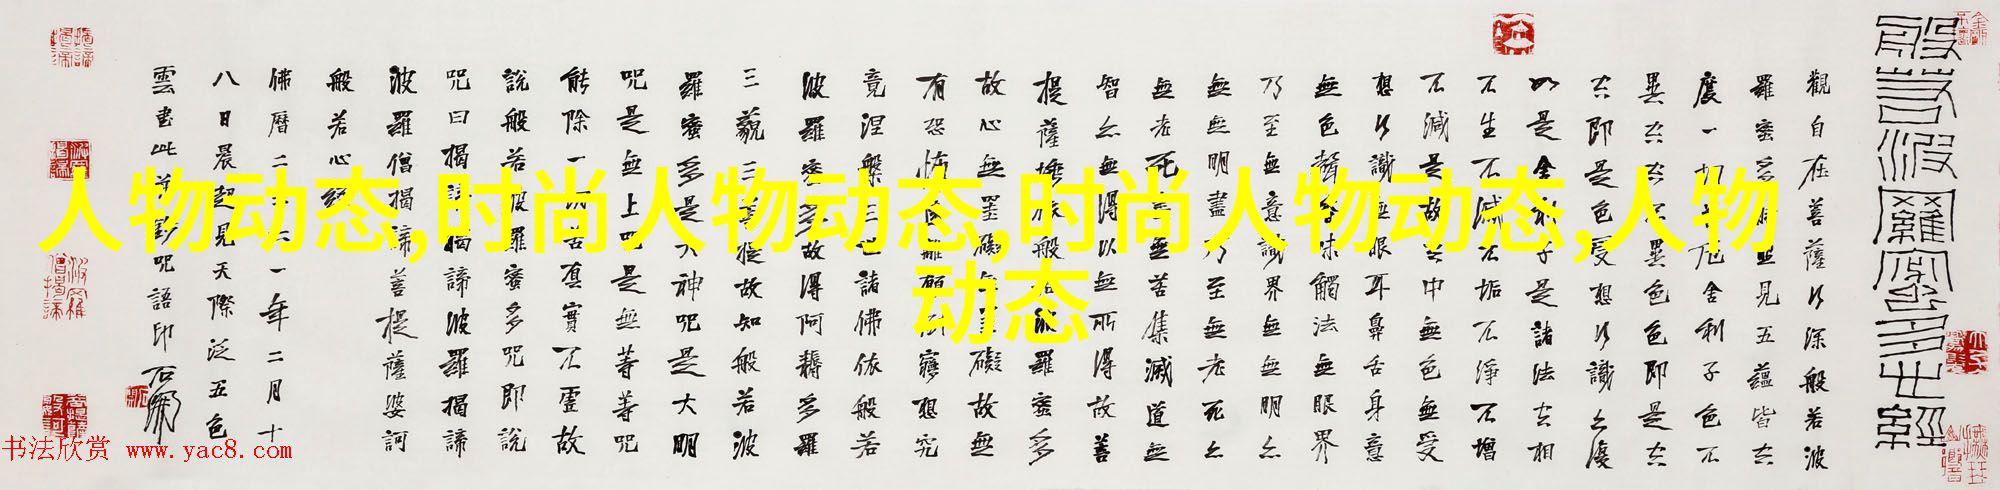 般若波羅蜜多心經
觀自在菩薩行深般若波
羅蜜多時照見五蘊皆空
度一切苦厄舍利子色不
異空空不異色色即是空
空即是色受想行識亦復
如是舍利子是諸法空相
不生不滅不垢不淨不增
不減是故空中無色無受
想行識無眼耳鼻舌身意
無色聲香味觸法無眼界
乃至無意識界無無明亦
無無明盡乃至無老死亦
無老死盡無苦集滅道無
智亦無得以無所得故菩
提薩埵依般若波羅蜜多
故心無罣礙無罣礙故無
有恐怖遠離顛倒夢想究
竟涅槃三世諸佛依般若
波羅蜜多故得阿耨多羅
三藐三菩提故知般若波
羅蜜多是大神咒是大明
咒是無上咒是無等等咒
能除一切苦真實不虛故
說般若波羅蜜多咒即說
咒曰揭諦揭諦波羅揭諦
波羅僧揭諦菩提薩婆訶
般若心經
佛曆二五六一年二月十
八日晨起見天際泛五色
雲書此并咒語印
人物动态,时尚人物动态,时尚人物动态,人物
动态
书法欣赏 www.yac8.com